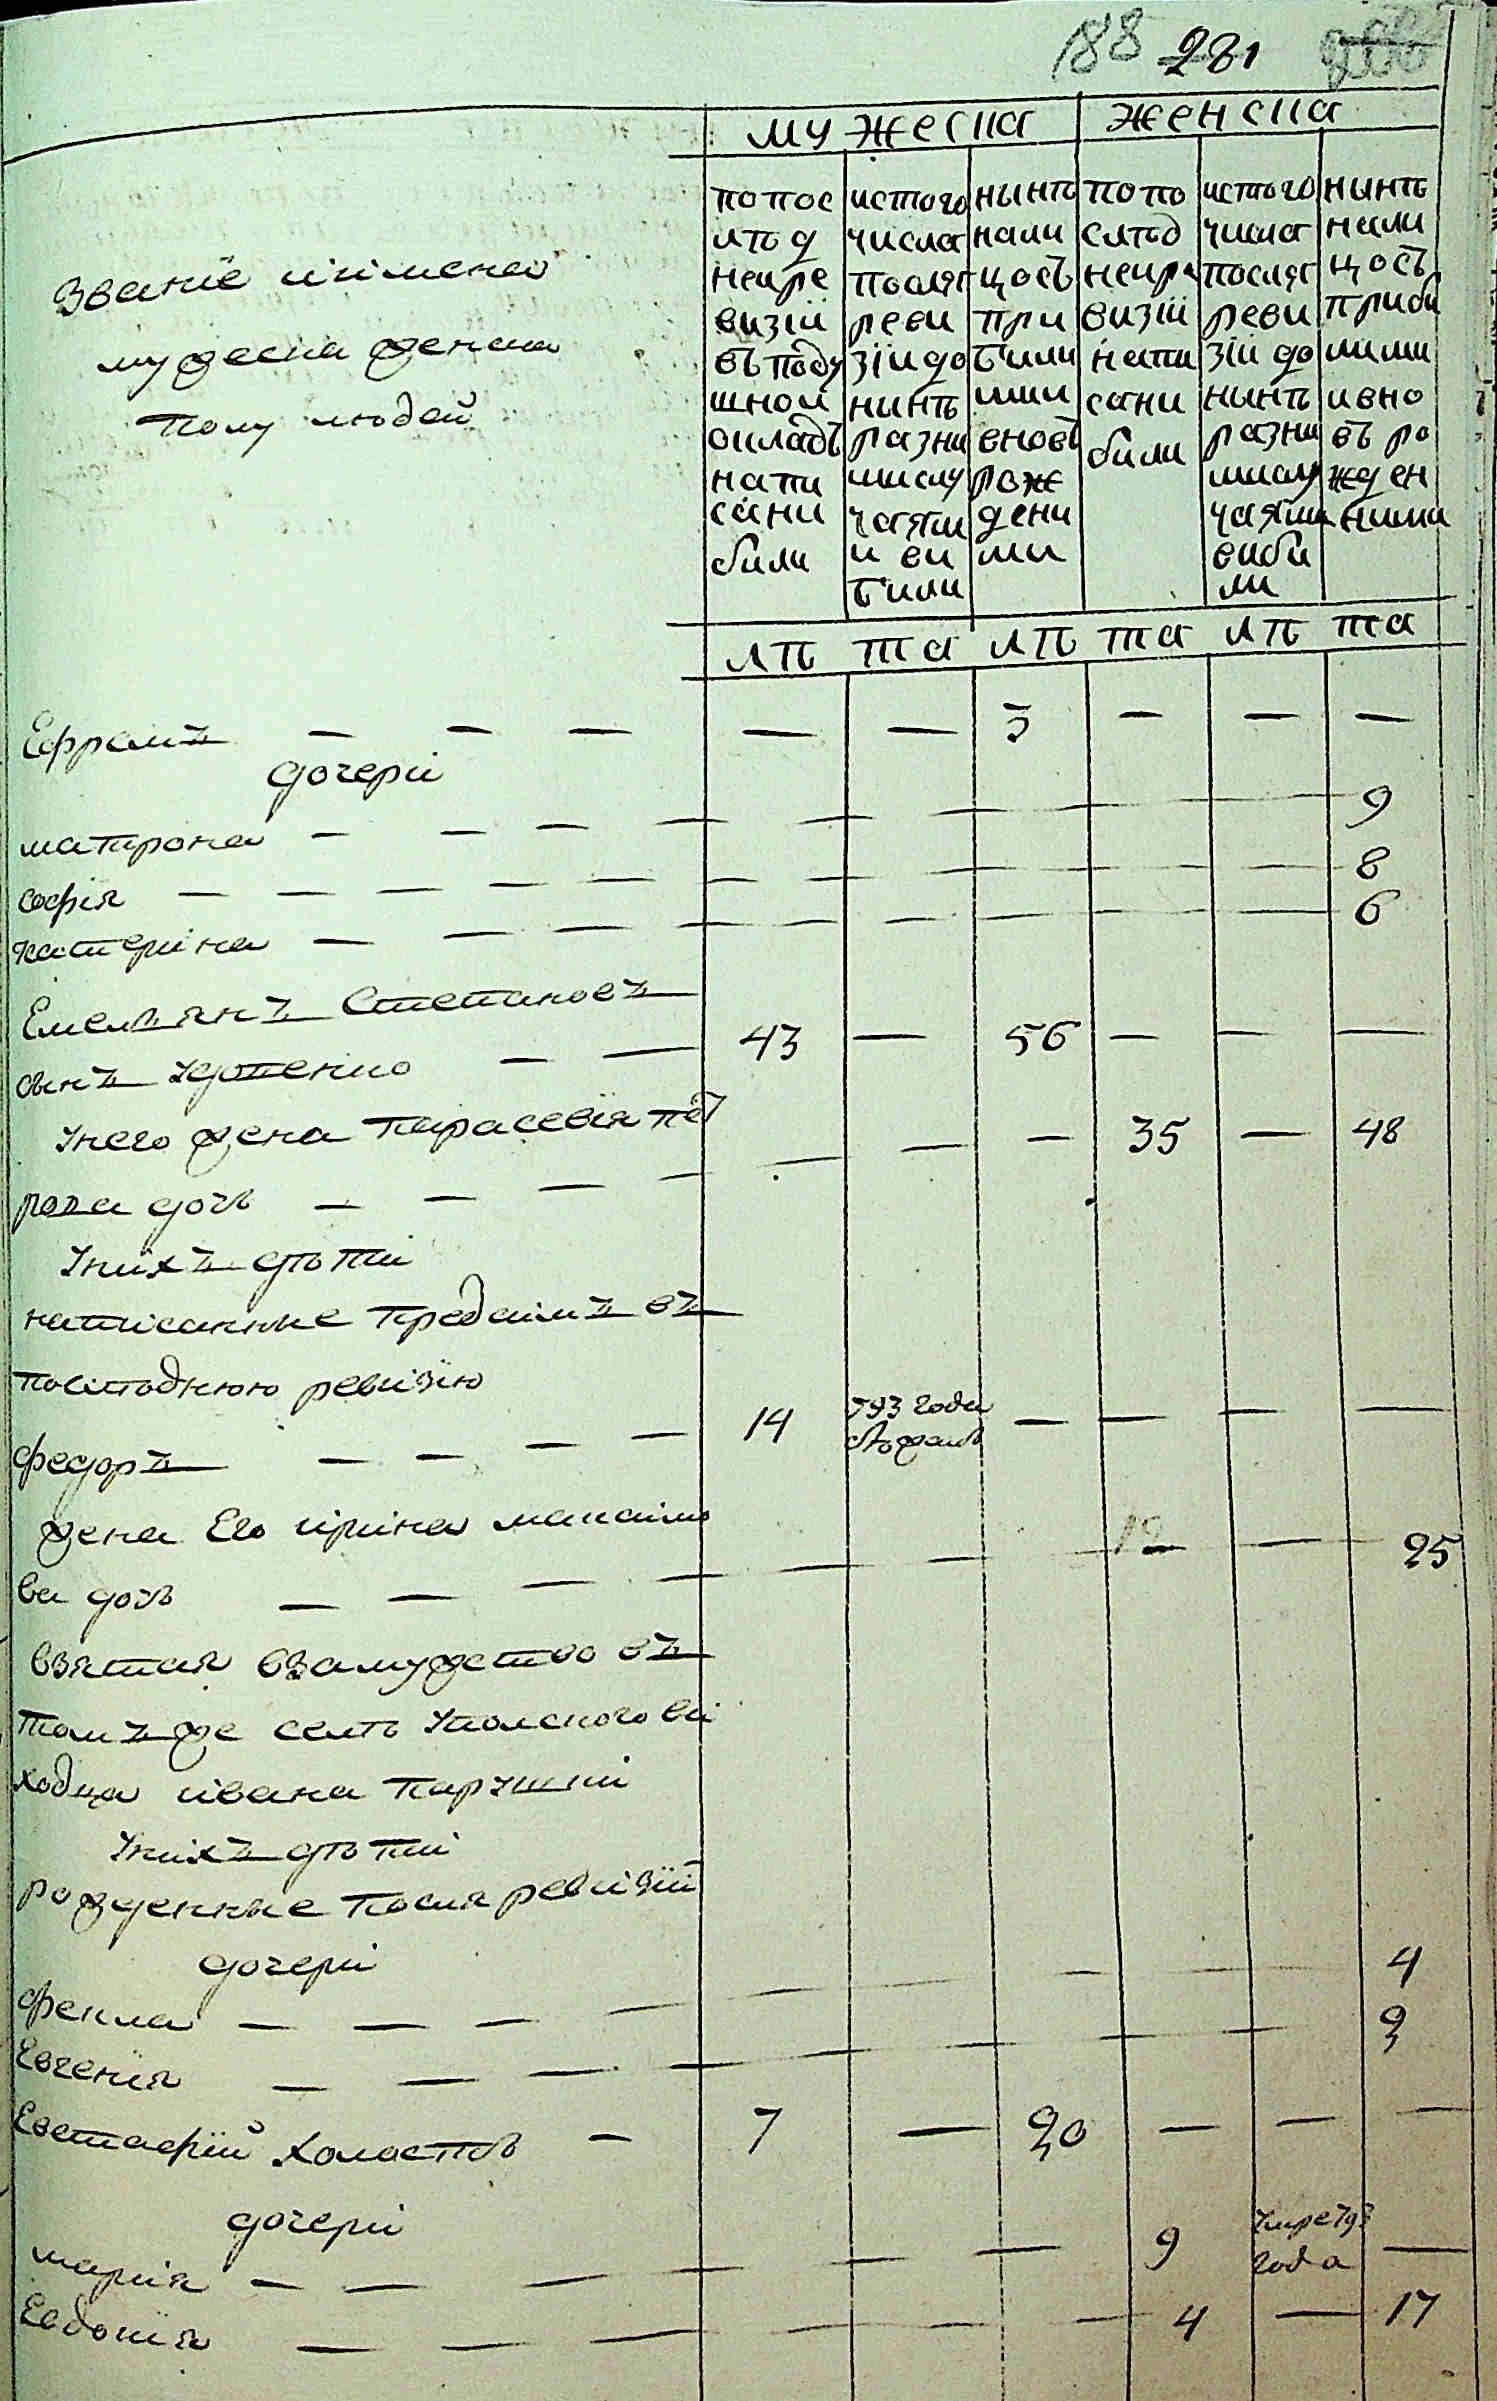 188 281
мужеска женска
званіе иимена
мужеска женска
полу людей
попос
лѣд
неире
визіи
въподу
шной
окладъ
напи
сани
били
истого
числа
посляг
реви
зіидо
нинѣ
разни
мислу
чаями
иви
били
нынѣ
нали
цосъ
при
били
ими
вновъ
рож
дени
ми
попо
слѣд
неире
визіи
напи
сани
били
истого
числа
посляг
реви
зіи до
нынѣ
разни
мислу
чаями
виби
ли
нынѣ
нали
цосъ
приби
лими
ивно
въ ро
жден
ними
лѣ та лѣ та лѣ та
Ефремъ — — — — — 3 — — —
дочери
матрона — — — — — — — — — 9
софія — — — — — — — — — — 8
катерина — — — — — — — — — 6
Емельянъ Степановъ
сынъ — — 43 — 56 — — —
Унего жена парасевія пет
рова дочь — — — — — — — 35 — 48
Унихъ дѣти
написанные предаимъ въ
послѣднюю ревизію
федоръ — — — — 14 793 года — — — —
жена Его ирина максимо
ва дочь — — — — — — 12 — 25
взятая взамужство въ
томъже селѣ Уполского ви
ходца ивана
Унихъ дѣти
рожденные посля ревизіи
дочери
фекла — — — — — — — — 4
Евгенія — — — — — — — — 2
Евстафій холостъ — 7 — 20 — — —
дочери
марія — — — — — — 9 Умре 793 года —
Евдокія — — — — — — 4 — 17